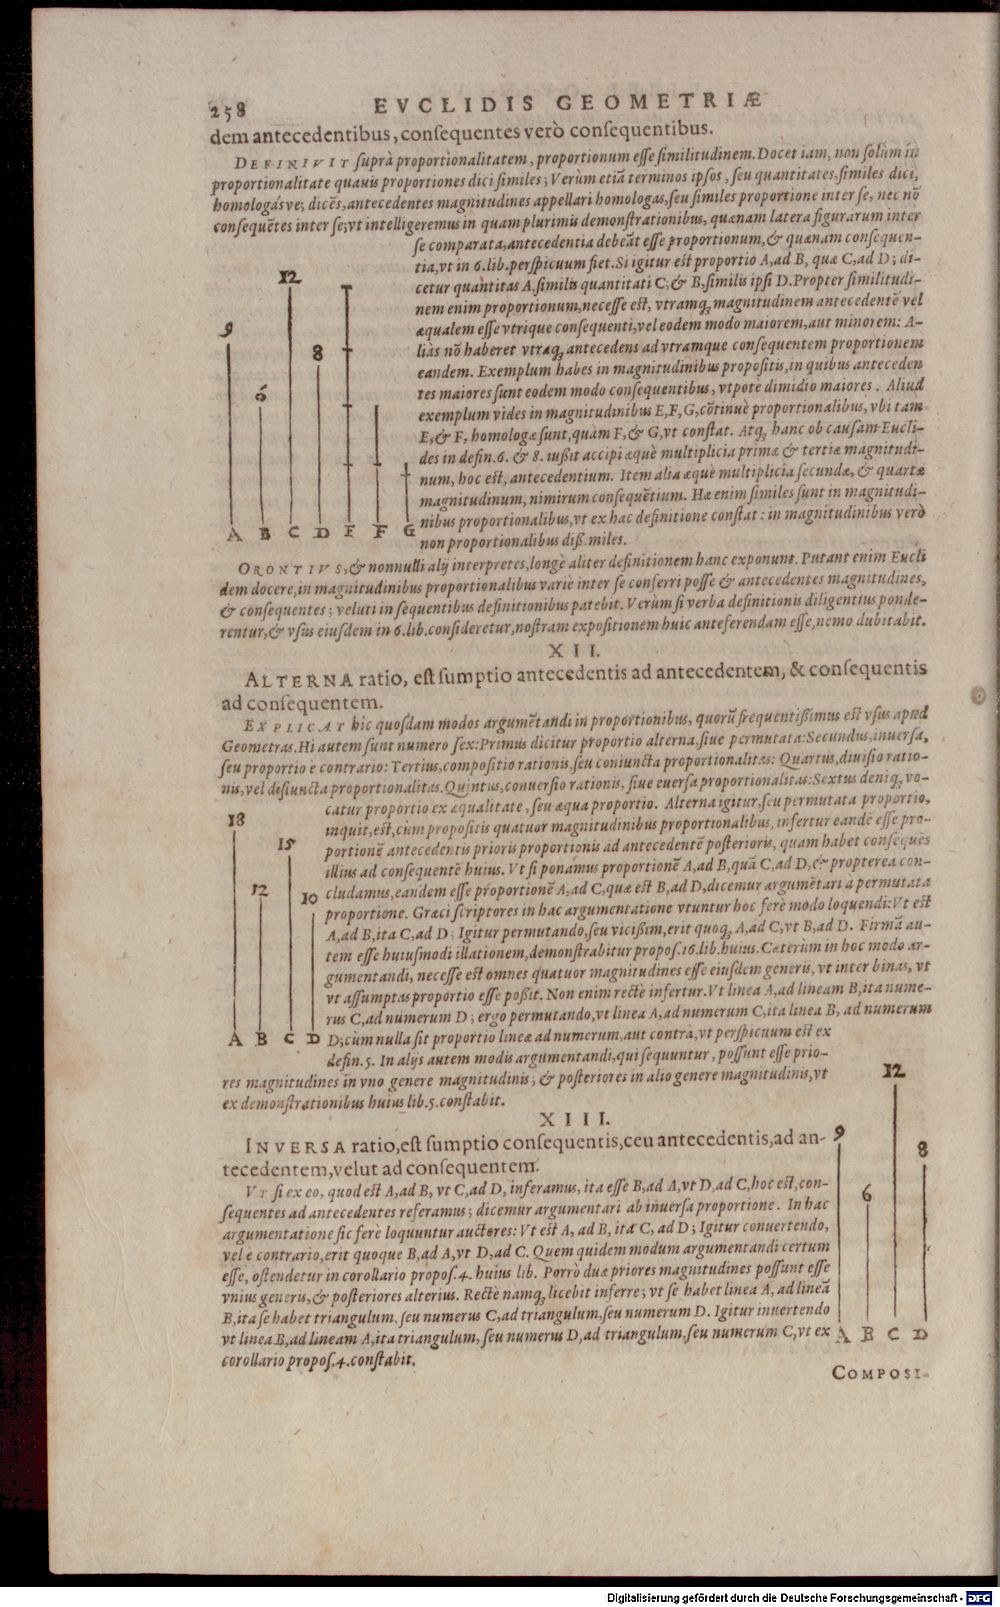 258 EVCLIDIS GEOMETRIÆ
dem antecedentibus, conſequentes verò conſequentibus.
DEFINIVIT ſuprà proportionalitatem, proportionum eſſe ſimilitudinem. Docet iam, non ſolùm in
proportionalitate quauis proportiones dici ſimiles; Verùm etiā terminos ipſos, ſeu quantitates, ſimiles dici,
homologasve; dicēs, antecedentes magnitudines appellari homologas, ſeu ſimiles proportione inter ſe, nec nō
conſequētes inter ſe; vt intelligeremus in quam plurimis demonſtrationibus, quænam latera figurarum inter
ſe comparata, antecedentia debeāt eſſe proportionum, & quænam conſequen-
tia, vt in 6. lib. perſpicuum fiet. Si igitur eſt proportio A, ad B, quæ C, ad D; di-
cetur quantitas A. ſimilis quantitati C; & B. ſimilis ipſi D. Propter ſimilitudi-
nem enim proportionum, neceſſe eſt, vtramq; magnitudinem antecedentē vel
æqualem eſſe vtrique conſequenti, vel eodem modo maiorem, aut minorem: A-
liàs nō haberet vtraq; antecedens ad vtramque conſequentem proportionem
eandem. Exemplum habes in magnitudinibus propoſitis, in quibus anteceden
tes maiores ſunt eodem modo conſequentibus, vtpote dimidio maiores. Aliud
exemplum vides in magnitudinibus E, F, G, cōtinuè proportionalibus, vbi tam
E, & F, homologæ ſunt, quàm F, & G, vt conſtat. Atq; hanc ob cauſam Eucli-
des in defin. 6. & 8. iußit accipi æquè multiplicia primæ & tertiæ magnitudi-
num, hoc eſt, antecedentium. Item alia æquè multiplicia ſecundæ, & quartæ
magnitudinum, nimirum conſequētium. Hæ enim ſimiles ſunt in magnitudi-
nibus proportionalibus, vt ex hac definitione conſtat: in magnitudinibus verò
non proportionalibus dißimiles.
12
9
8
6
A B C D E F G
ORONTIVS, & nonnulli alij interpretes, longè aliter definitionem hanc exponunt. Putant enim Eucli
dem docere, in magnitudinibus proportionalibus variè inter ſe conferri poſſe & antecedentes magnitudines,
& conſequentes; veluti in ſequentibus definitionibus patebit. Verùm ſi verba definitionis diligentius ponde-
rentur, & vſus eiuſdem in 6. lib. conſideretur, noſtram expoſitionem huic anteferendam eſſe, nemo dubitabit.
XII.
ALTERNA ratio, eſt ſumptio antecedentis ad antecedentem, & conſequentis
ad conſequentem.
EXPLICAT hic quoſdam modos argumētandi in proportionibus, quorū frequentißimus eſt vſus apud
Geometras. Hi autem ſunt numero ſex: Primus dicitur proportio alterna, ſiue permutata: Secundus, inuerſa,
ſeu proportio è contrario: Tertius, compoſitio rationis, ſeu coniuncta proportionalitas: Quartus, diuiſio ratio-
nis, vel diſiuncta proportionalitas. Quintus, conuerſio rationis, ſiue euerſa proportionalitas: Sextus deniq; vo-
catur proportio ex æqualitate, ſeu æqua proportio. Alterna igitur, ſeu permutata proportio,
inquit, eſt, cùm propoſitis quatuor magnitudinibus proportionalibus, infertur eandē eſſe pro-
portionē antecedentis prioris proportionis ad antecedentē poſterioris, quam habet conſequēs
illius ad conſequentē huius. Vt ſi ponamus proportionē A, ad B, quā C, ad D, & propterea con-
cludamus, eandem eſſe proportionē A, ad C, quæ eſt B, ad D, dicemur argumētari à permutata
proportione. Græci ſcriptores in hac argumentatione vtuntur hoc ferè modo loquendi: Vt eſt
A, ad B, ita C, ad D; Igitur permutando, ſeu viciſſim, erit quoq; A, ad C, vt B, ad D. Firmā au-
tem eſſe huiuſmodi illationem, demonſtrabitur propoſ. 16. lib. huius. Cæterùm in hoc modo ar-
gumentandi, neceſſe eſt omnes quatuor magnitudines eſſe eiuſdem generis, vt inter binas, vt
vt aſſumptas proportio eſſe poßit. Non enim rectè infertur. Vt linea A, ad lineam B, ita nume-
rus C, ad numerum D; ergo permutando, vt linea A, ad numerum C, ita linea B, ad numerum
D; cùm nulla ſit proportio lineæ ad numerum, aut contrà, vt perſpicuum eſt ex
defin. 5. In alijs autem modis argumentandi, qui ſequuntur, poſſunt eſſe prio-
res magnitudines in vno genere magnitudinis; & poſteriores in alio genere magnitudinis, vt
ex demonſtrationibus huius lib. 5. conſtabit.
18
15
12
10
A B C D
XIII.
INVERSA ratio, eſt ſumptio conſequentis, ceu antecedentis, ad an-
tecedentem, velut ad conſequentem.
VT ſi ex eo, quod eſt A, ad B, vt C, ad D, inferamus, ita eſſe B, ad A, vt D, ad C, hoc eſt, con-
ſequentes ad antecedentes referamus; dicemur argumentari ab inuerſa proportione. In hac
argumentatione ſic ferè loquuntur auctores: Vt eſt A, ad B, ita C, ad D; Igitur conuertendo,
vel e contrario, erit quoque B, ad A, vt D, ad C. Quem quidem modum argumentandi certum
eſſe, oſtendetur in corollario propoſ. 4. huius lib. Porrò duæ priores magnitudines poſſunt eſſe
vnius generis, & poſteriores alterius. Rectè namq; licebit inferre; vt ſe habet linea A, ad lineā
B, ita ſe habet triangulum, ſeu numerus C, ad triangulum, ſeu numerum D. Igitur inuertendo
vt linea B, ad lineam A, ita triangulum, ſeu numerus D, ad triangulum, ſeu numerum C, vt ex
corollario propoſ. 4. conſtabit.
12
9
8
6
A B C D
COMPOSI-
Digitalisierung gefördert durch die Deutsche Forschungsgemeinschaft - DFG